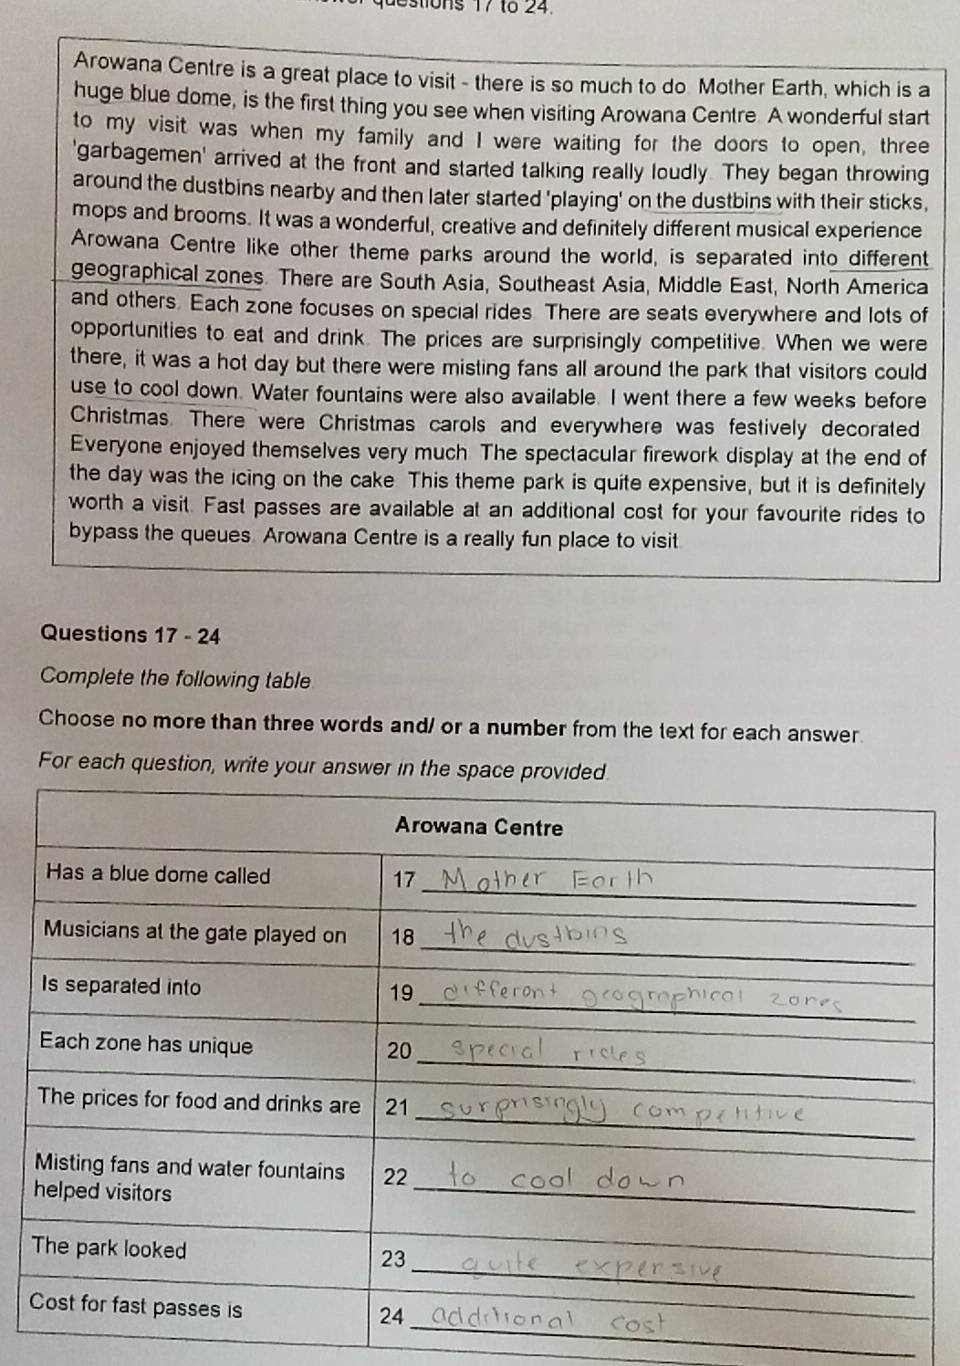 questions 17 to 24.
Arowana Centre is a great place to visit - there is so much to do. Mother Earth, which is a
huge blue dome, is the first thing you see when visiting Arowana Centre. A wonderful start
to my visit was when my family and I were waiting for the doors to open, three
'garbagemen' arrived at the front and started talking really loudly. They began throwing
around the dustbins nearby and then later started 'playing' on the dustbins with their sticks,
mops and brooms. It was a wonderful, creative and definitely different musical experience.
Arowana Centre like other theme parks around the world, is separated into different
geographical zones. There are South Asia, Southeast Asia, Middle East, North America
and others. Each zone focuses on special rides. There are seats everywhere and lots of
opportunities to eat and drink. The prices are surprisingly competitive. When we were
there, it was a hot day but there were misting fans all around the park that visitors could
use to cool down. Water fountains were also available. I went there a few weeks before
Christmas. There were Christmas carols and everywhere was festively decorated.
Everyone enjoyed themselves very much. The spectacular firework display at the end of
the day was the icing on the cake. This theme park is quite expensive, but it is definitely
worth a visit. Fast passes are available at an additional cost for your favourite rides to
bypass the queues. Arowana Centre is a really fun place to visit.
Questions 17 - 24
Complete the following table.
Choose no more than three words and/ or a number from the text for each answer.
For each question, write your answer in the space provided.
Arowana Centre
Has a blue dome called 17 Mother Earth
Musicians at the gate played on 18 the dustbins
Is separated into 19 different geographical zones
Each zone has unique 20 special rides
The prices for food and drinks are 21 surprisingly competitive
Misting fans and water fountains 22 to cool down
helped visitors
The park looked 23 quite expensive
Cost for fast passes is 24 additional cost